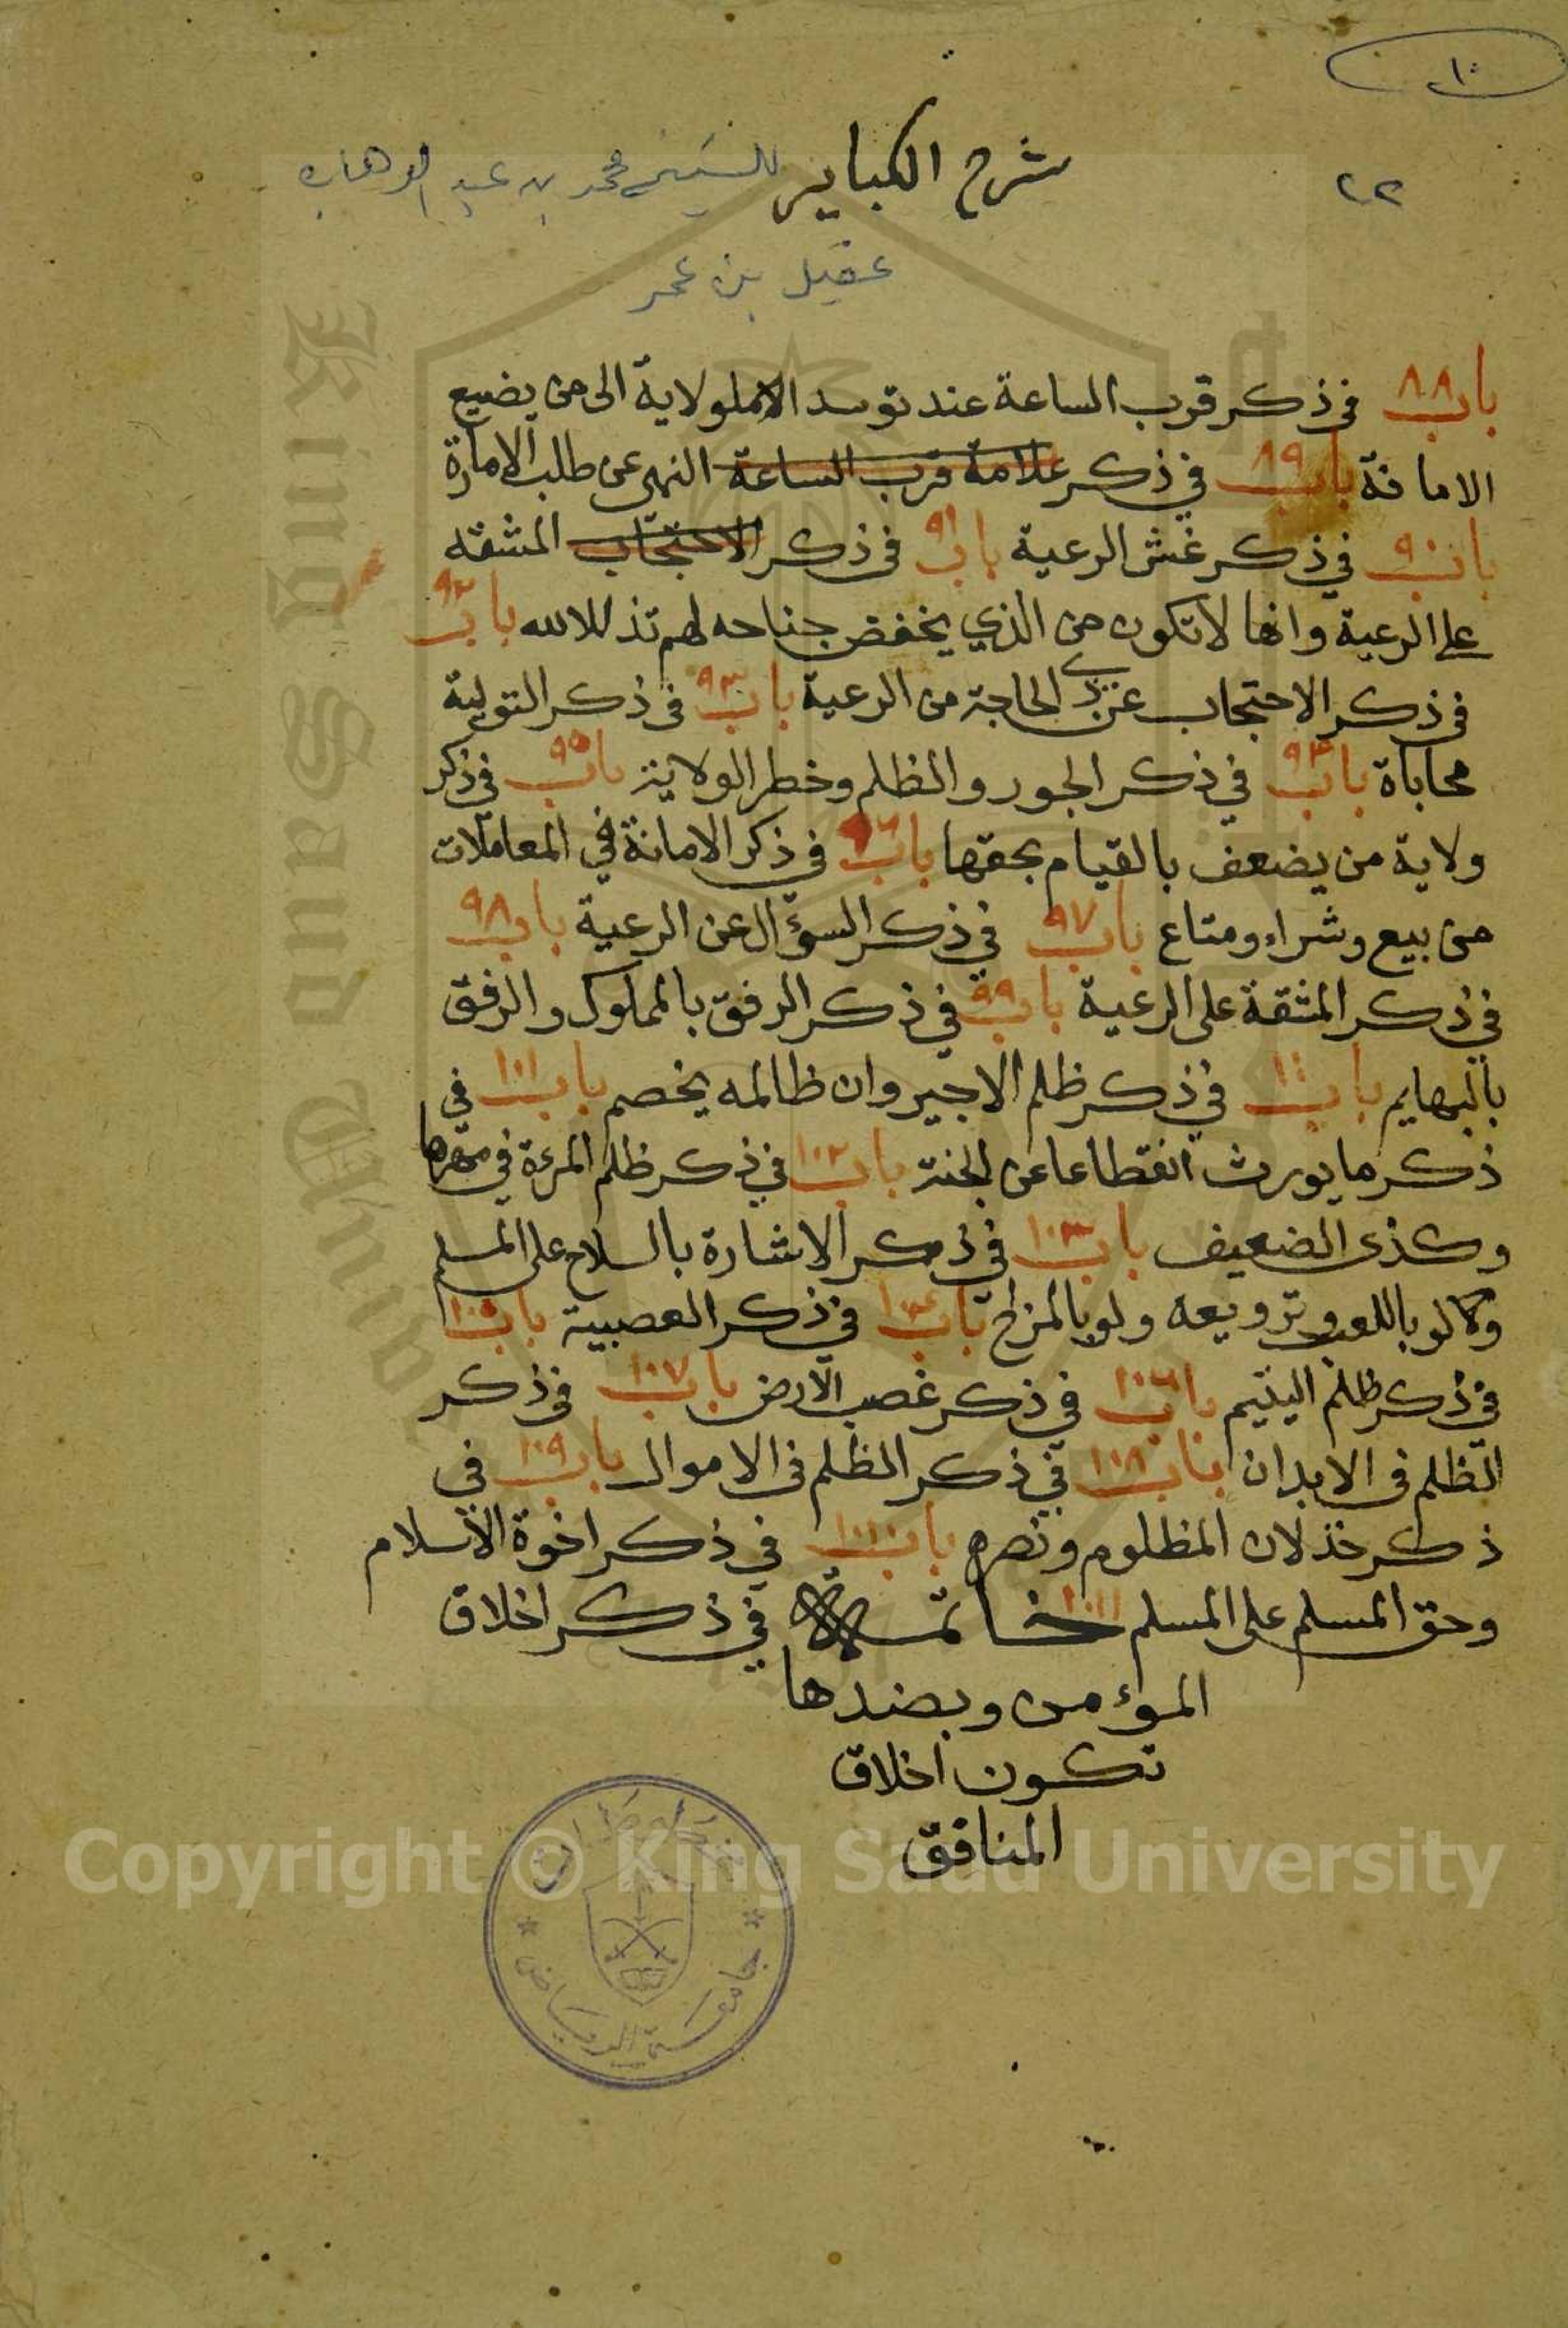 ١٠
٢٢
شرح الكباير للشيخ محمد بن عبد الوهاب
عقيل بن عمر
باب ٨٨ في ذكر قرب الساعة عند توسد الولاية الى من يضيع
الامانة باب ٨٩ في ذكر علامة قرب الساعة النهى عن طلب الامارة
باب ٩٠ في ذكر غش الرعية باب ٩١ في ذكر الاحتجاب المشقه
على الرعية وانها لا تكون من الذي يخفض جناحه لهم تذللا لله باب ٩٢
في ذكر الاحتجاب عن ذي الحاجة من الرعية باب ٩٣ في ذكر التولية
محاباة باب ٩٤ في ذكر الجور والظلم وخطر الولاية باب ٩٥ في ذكر
ولاية من يضعف بالقيام بحقها باب ٩٦ في ذكر الامانة في المعاملات
من بيع وشراء ومتاع باب ٩٧ في ذكر السؤال عن الرعية باب ٩٨
في ذكر المشقة على الرعية باب ٩٩ في ذكر الرفق بالمملوك والرفق
بالبهايم باب ١٠٠ في ذكر ظلم الاجير وان ظالمه يخصم باب ١٠١ في
ذكر ما يورث انقطاعا عن الجنة باب ١٠٢ في ذكر ظلم المرءة في مهرها
وكذى الضعيف باب ١٠٣ في ذكر الاشارة بالسلاح على المسلم
وكالو باللعب وترويعه ولو بالمزاح باب ١٠٤ في ذكر العصبية باب ١٠٥
في ذكر ظلم اليتيم باب ١٠٦ في ذكر غصب الارض باب ١٠٧ في ذكر
الظلم في الابدان باب ١٠٨ في ذكر الظلم في الاموال باب ١٠٩ في
ذكر خذلان المظلوم ونصره باب ١١٠ في ذكر اخوة الاسلام
وحق المسلم على المسلم ١١١ خاتمة في ذكر اخلاق
المؤمن وبضدها
تكون اخلاق
المنافق
Copyright © King Saud University
جامعة الرياض